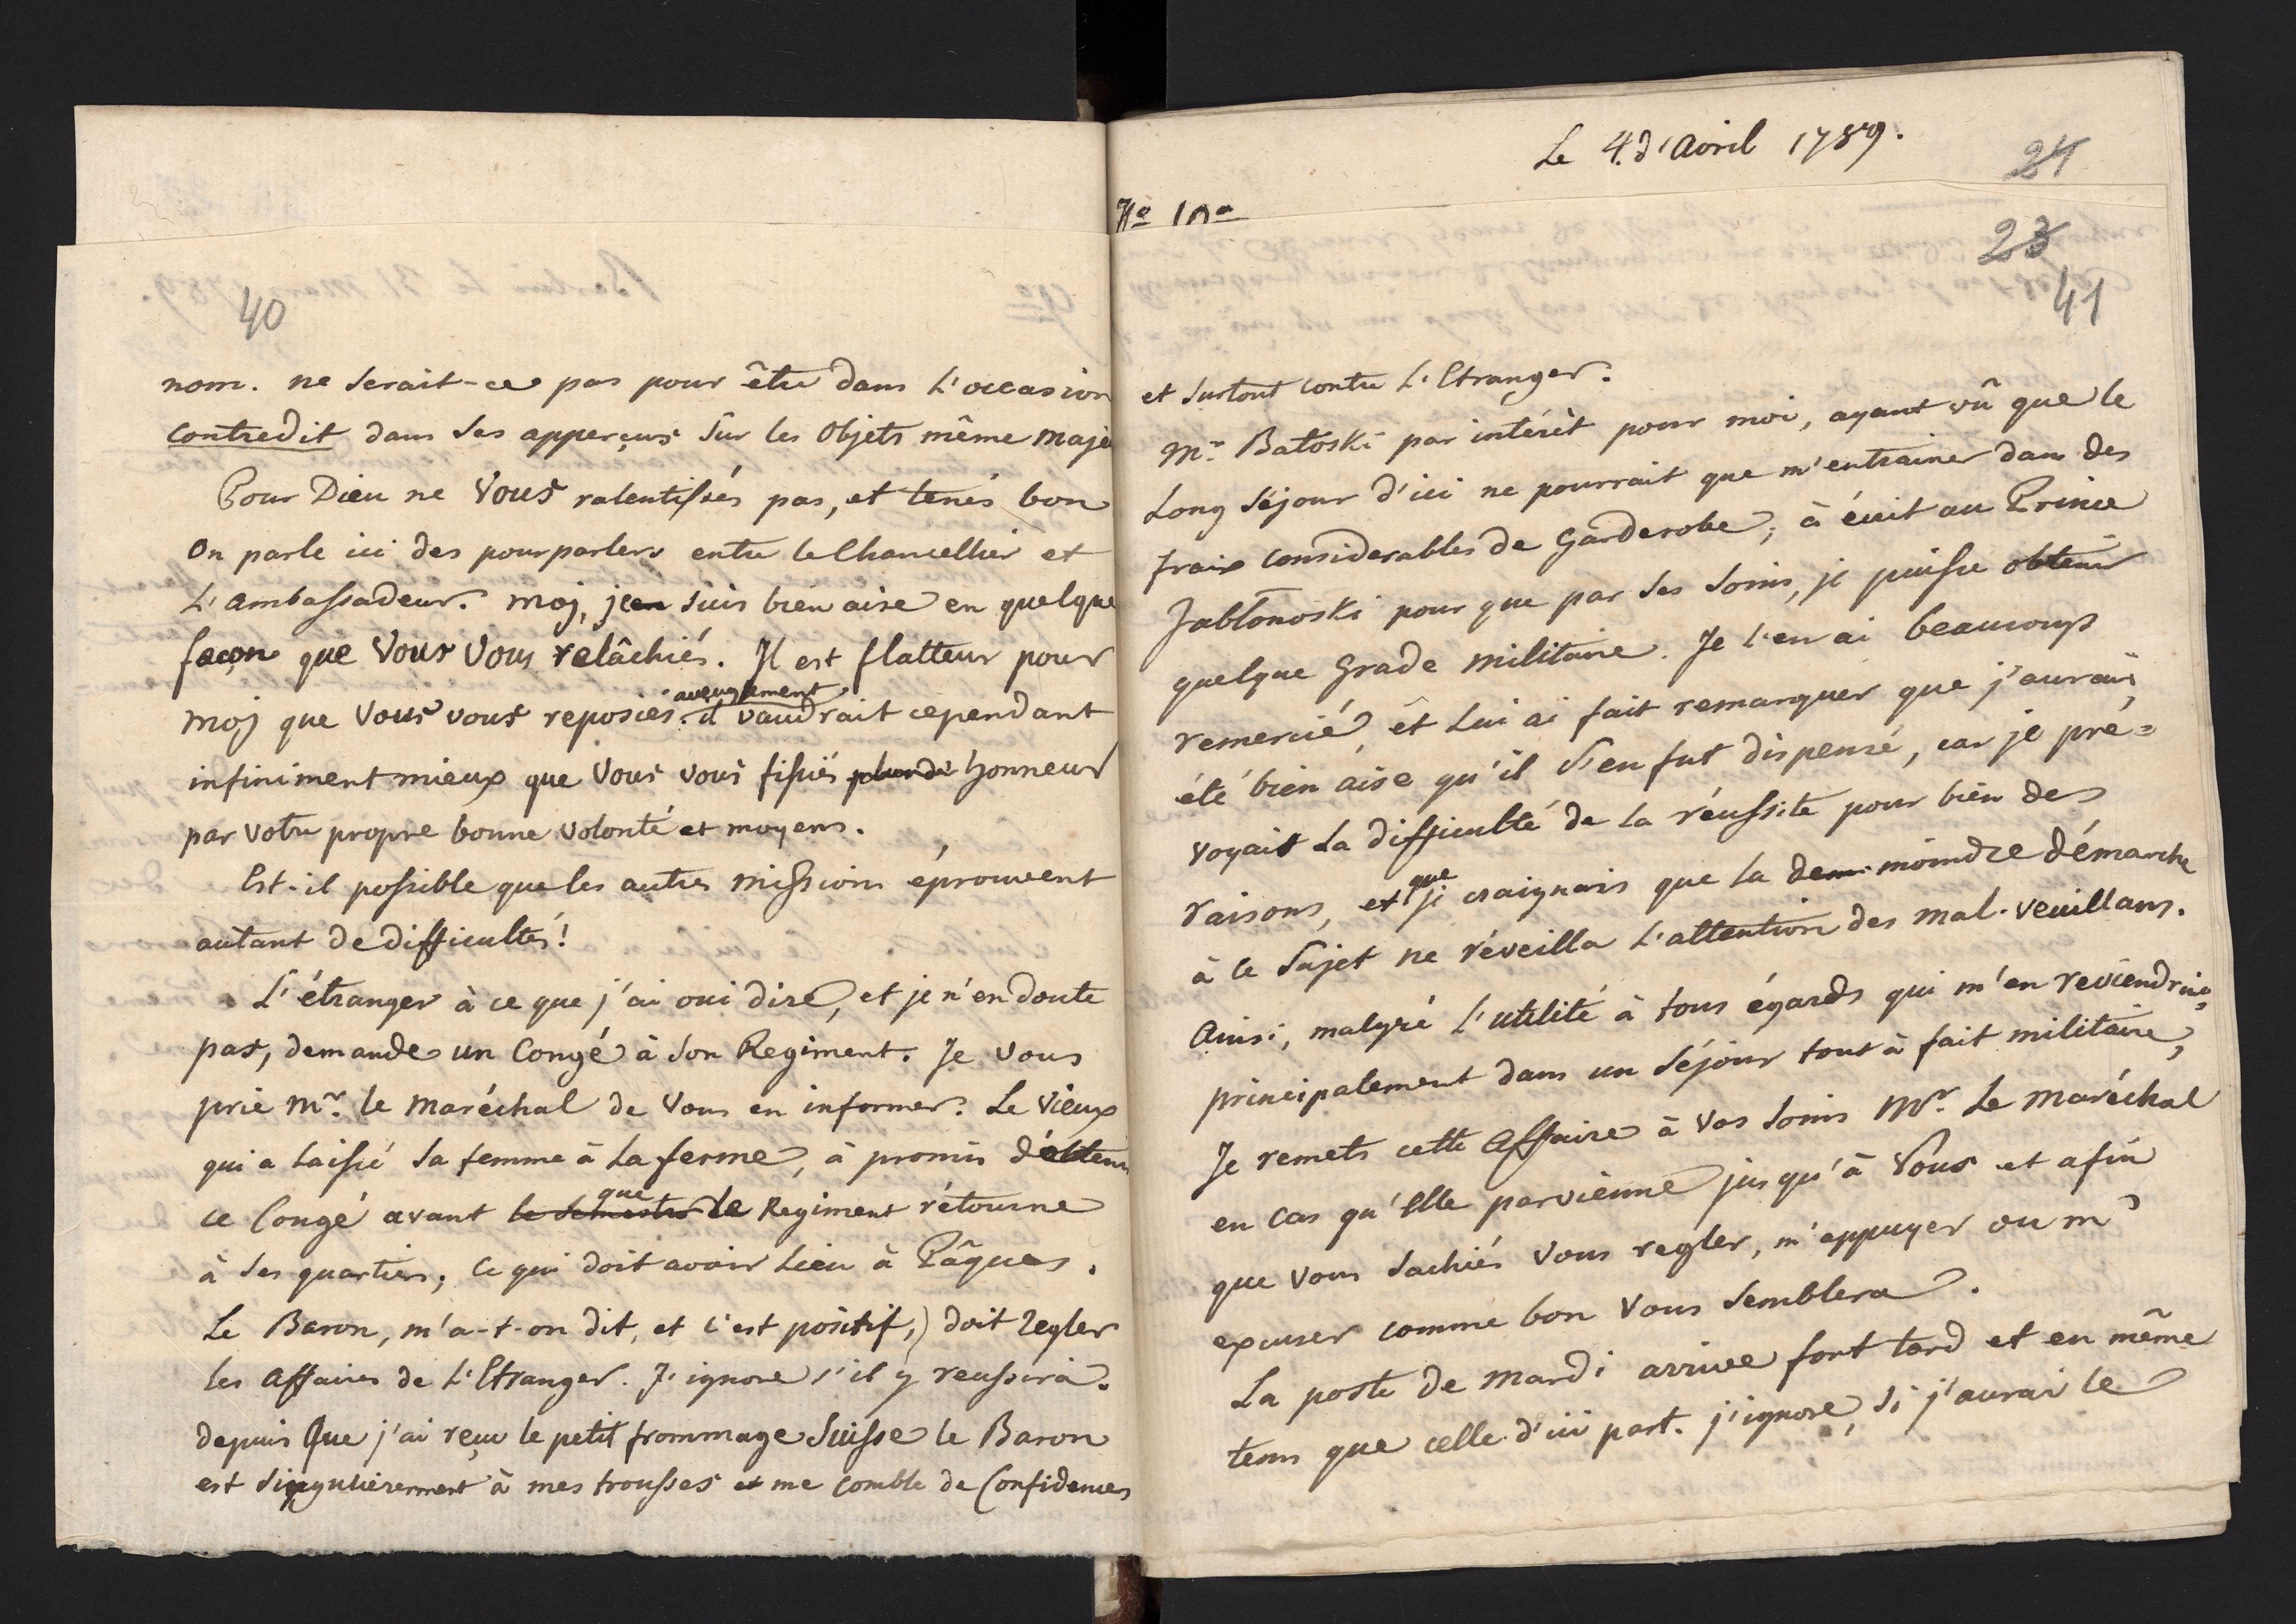 40
nom. ne serait-ce pas pour être dans l'occasion
contredit dans ses apperçus sur les Objets même maje
Pour Dieu ne Vous ralentissés pas, et tenés bon
On parle ici des pourparlers entre le Chancellier et
L'ambassadeur. moj, j'en suis bien aise en quelque
façon que Vous Vous relâchiés. Il est flatteur pour
aveuglement
moj que Vous vous reposiés. il vaudrait cependant
infiniment mieux que Vous vous fissiés honneur
par votre propre bonne volonté et moyens.
Est-il possible que les autres missions éprouvent
autant de difficultés!
L'étranger à ce que j'ai oui dire, et je n'en doute
pas, demande un Congé à son Regiment. Je vous
prie Mr. le Maréchal de Vous en informer. Le Vieux
qui a laissé sa femme à la ferme, à promis d'obtenir
que
ce Congé avant le semestre le Regiment rétourne
à ses quartiers, ce qui doit avoir lieu à Pâques.
Le Baron, m'a-t-on dit, et c'est positif,) doit regler
les affaires de L'Etranger. J'ignore s'il y reussira.
depuis que j'ai reçu le petit frommage Suisse le Baron
est singulièrement à mes trousses et me comble de Confidences
Le 4. d'Avril 1789.
24
No 10o
23
41
et surtout contre L'Etranger.
Mr. Batoski par intérêt pour moi, ayant vû que le
Long séjour d'ici ne pourrait que m'entrainer dans des
fraix considerables de Garderobe, à écrit au Prince
Jabłonoski pour que par ses soins, je puisse obtenir
quelque Grade militaire. Je l'en ai beaucoup
remercié, et Lui ai fait remarquer que j'aurais
été bien aise qu'il s'en fut dispensé, car je pré=
voyais La difficulté de la réussite pour bien des
que
raisons, et je craignais que la moindre démarche
à ce sujet ne réveilla L'attention des mal-veuillans.
Ainsi, malgré L'utilité à tous égards qui m'en reviendrait
principalement dans un séjour tout à fait militaire,
Je remets cette Affaire à vos soins Mr. Le Maréchal
en cas qu'Elle parvienne jusqu'à Vous et afin
que vous sachiés Vous regler, m'appuyer ou m'
excuser comme bon Vous semblera.
La poste de mardi arrive fort tard et en même
tems que celle d'ici part. j'ignore, si j'aurai le